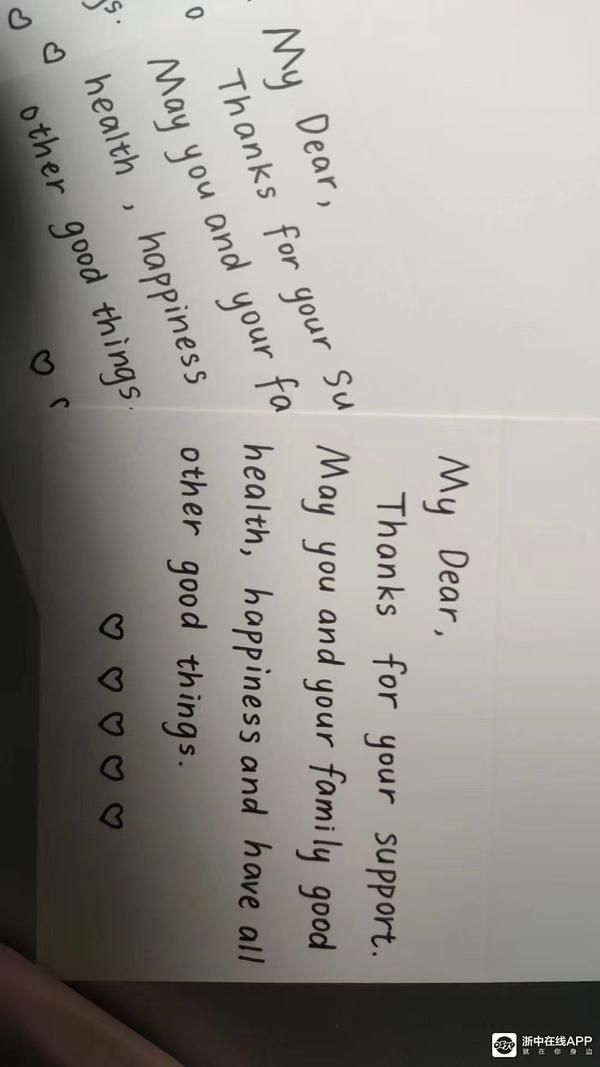 gs.
My Dear,
Thanks for your su
May you and your fa
health, happiness
other good things.
My Dear,
Thanks for your support.
May you and your family good
health, happiness and have all
other good things.
浙中在线APP
就在你身边